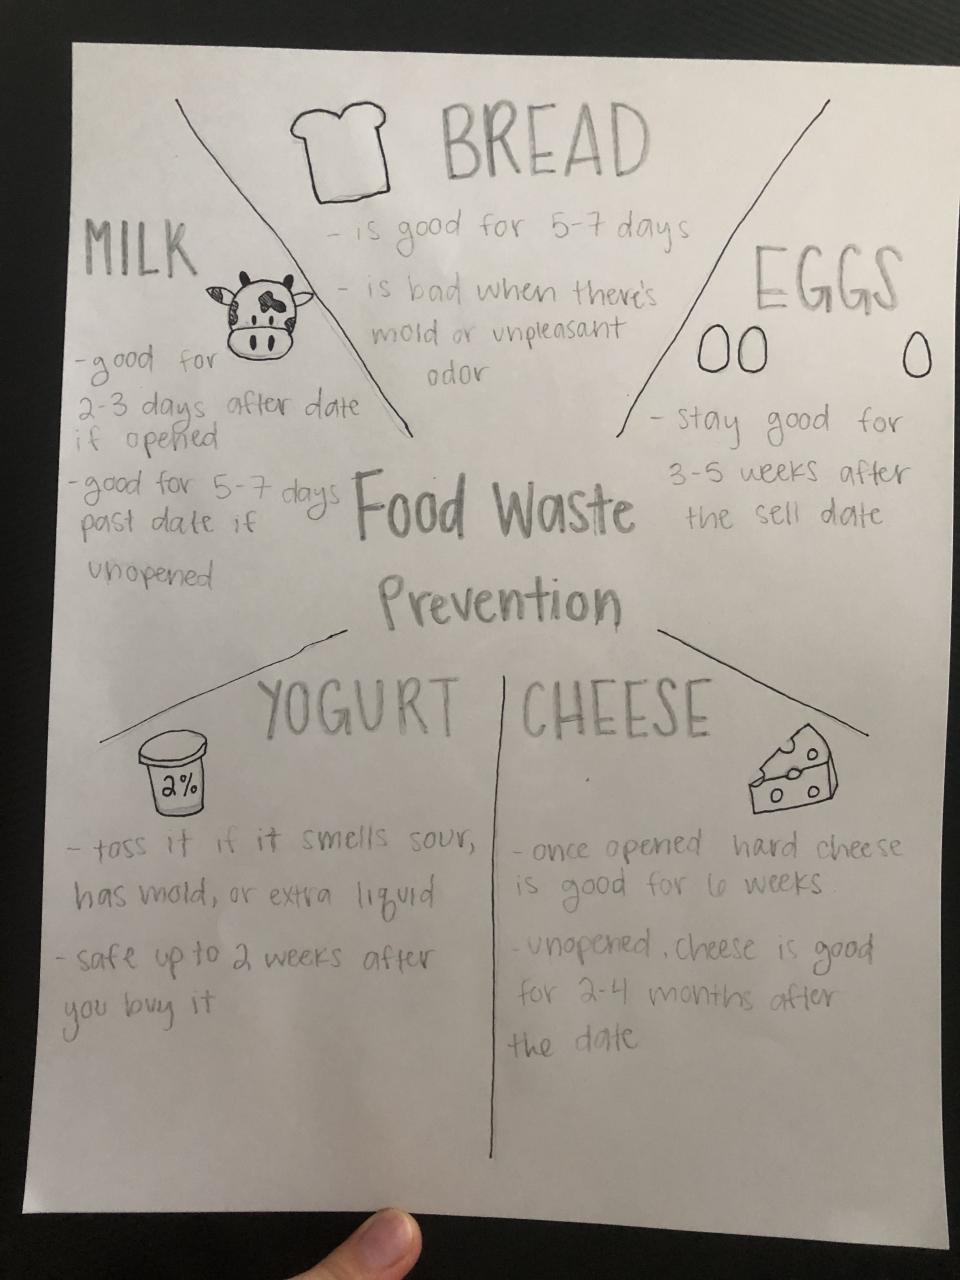 BREAD
- is good for 5-7 days
- is bad when there's
mold or unpleasant
odor
MILK
- good for
2-3 days after date
if opened
- good for 5-7 days
past date if
unopened
EGGS
- stay good for
3-5 weeks after
the sell date
Food Waste
Prevention
YOGURT
2%
- toss it if it smells sour,
has mold, or extra liquid
- safe up to 2 weeks after
you buy it
CHEESE
- once opened hard cheese
is good for 6 weeks
- unopened, cheese is good
for 2-4 months after
the date